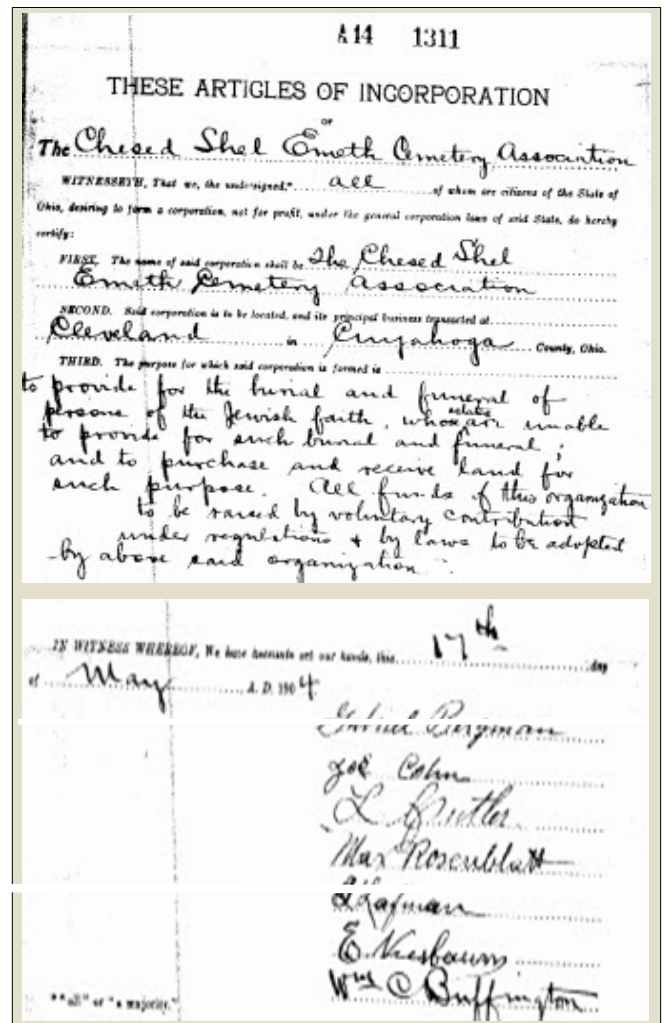 A14 1311
THESE ARTICLES OF INCORPORATION
OF
The Chesed Shel Emeth Cemetery Association
WITNESSETH, That we, the undersigned,* all of whom are citizens of the State of
Ohio, desiring to form a corporation, not for profit, under the general corporation laws of said State, do hereby
certify:
FIRST. The name of said corporation shall be The Chesed Shel
Emeth Cemetery Association
SECOND. Said corporation is to be located, and its principal business transacted at
Cleveland in Cuyahoga County, Ohio.
THIRD. The purpose for which said corporation is formed is
to provide for the burial and funeral of
persons of the Jewish faith, whose are unable
to provide for such burial and funeral;
and to purchase and receive land for
such purpose. All funds of this organization
to be raised by voluntary contribution
under regulations & by laws to be adopted
by above said organization.
IN WITNESS WHEREOF, We have hereunto set our hands, this 17th day
of May A. D. 1904
Bergman
Joe Cohn
L Butler
Max Rosenblatt
E. Nusbaum
Wm C Buffington
*"all" or "a majority."